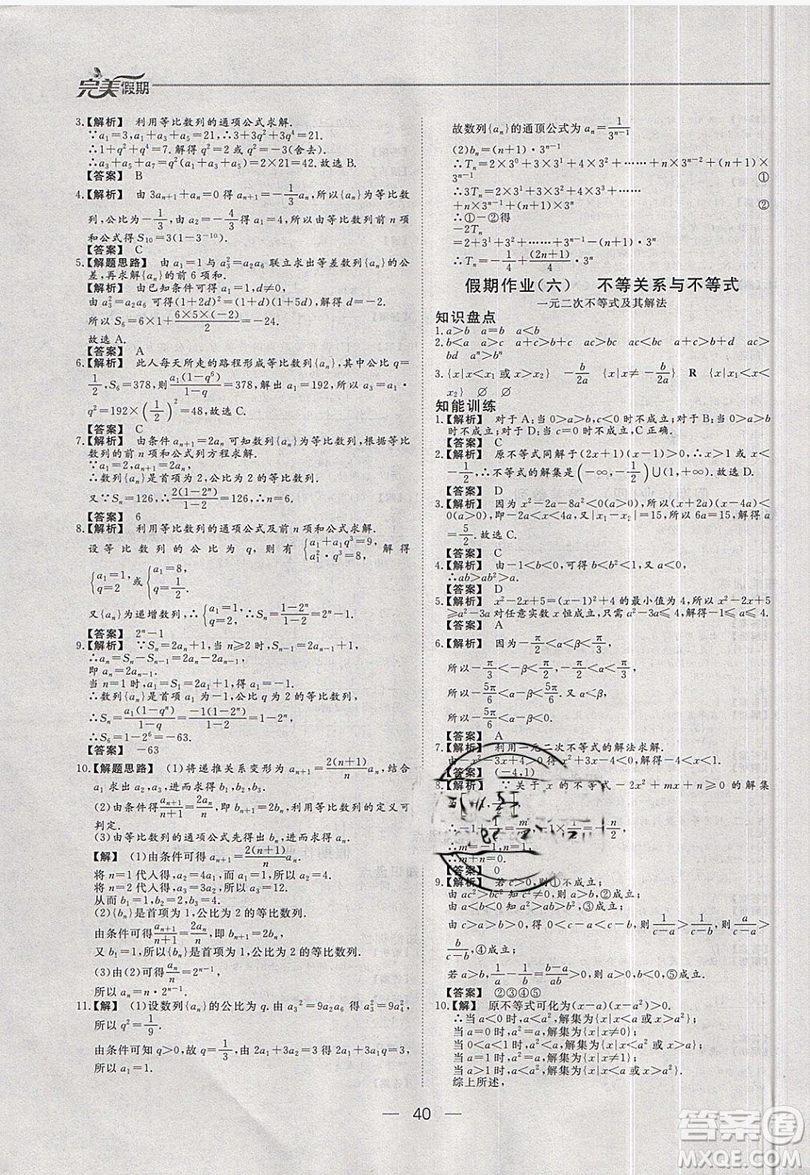 完美假期
3.【解析】 利用等比数列的通项公式求解.
∵a₁=3,a₁+a₃+a₅=21,∴3+3q²+3q⁴=21.
∴1+q²+q⁴=7.解得q²=2或q²=-3(舍去).
∴a₃+a₅+a₇=q²(a₁+a₃+a₅)=2×21=42.故选B.
【答案】 B
4.【解析】 由3aₙ₊₁+aₙ=0得aₙ₊₁=-1/3 aₙ,所以{aₙ}为等比数列,公比为-1/3,
【答案】 C
5.【解题思路】 由a₁=1与a₃²=a₂a₆联立求出等差数列{aₙ}的公差,再求{aₙ}的前6项和.
故选A.
【答案】 A
6.【解析】 此人每天所走的路程形成等比数列,其中公比q=
1/2,S₆=378,则a₁(1-q⁶)/(1-q)=378,解得a₁=192,所以a₃=a₁
q²=192×(1/2)²=48,故选C.
【答案】 C
7.【解析】 由条件aₙ₊₁=2aₙ可知数列{aₙ}为等比数列,根据等比数列的前n项和公式列方程求解.
∵a₁=2,aₙ₊₁=2aₙ,
∴数列{aₙ}是首项为2,公比为2的等比数列.
又∵Sₙ=126,∴2(1-2ⁿ)/(1-2)=126,∴n=6.
【答案】 6
8.【解析】 利用等比数列的通项公式及前n项和公式求解.
设等比数列的公比为q,则有{a₁+a₁q³=9, a₁²·q³=8, 解得
{a₁=1, q=2 或{a₁=8, q=1/2.
又{aₙ}为递增数列,∴{a₁=1, q=2,∴Sₙ=(1-2ⁿ)/(1-2)=2ⁿ-1.
【答案】 2ⁿ-1
9.【解析】 ∵Sₙ=2aₙ+1,当n≥2时,Sₙ₋₁=2aₙ₋₁+1,
∴aₙ=Sₙ-Sₙ₋₁=2aₙ-2aₙ₋₁,
即aₙ=2aₙ₋₁.
当n=1时,a₁=S₁=2a₁+1,得a₁=-1.
∴数列{aₙ}是首项a₁为-1,公比q为2的等比数列,
∴Sₙ=a₁(1-qⁿ)/(1-q)=-1(1-2ⁿ)/(1-2)=1-2ⁿ,
∴S₆=1-2⁶=-63.
【答案】 -63
10.【解题思路】 (1)将递推关系变形为aₙ₊₁=2(n+1)/n aₙ,结合a₁求出a₂,a₃,进而求得b₁,b₂,b₃.
(2)由条件得aₙ₊₁/(n+1)=2aₙ/n,即bₙ₊₁=2bₙ,利用等比数列的定义可判定.
(3)由等比数列的通项公式先得出bₙ,进而求出aₙ.
【解】 (1)由条件可得aₙ₊₁=2(n+1)/n aₙ.
将n=1代入得,a₂=4a₁,而a₁=1,所以a₂=4.
将n=2代入得,a₃=3a₂,所以a₃=12.
从而b₁=1,b₂=2,b₃=4.
(2){bₙ}是首项为1,公比为2的等比数列.
由条件可得aₙ₊₁/(n+1)=2aₙ/n,即bₙ₊₁=2bₙ,
又b₁=1,所以{bₙ}是首项为1,公比为2的等比数列.
(3)由(2)可得aₙ/n=2ⁿ⁻¹,
所以aₙ=n·2ⁿ⁻¹.
11.【解】 (1)设数列{aₙ}的公比为q.由a₃²=9a₂a₆得a₃²=9a₄²,
所以q²=1/9.
由条件可知q>0,故q=1/3.由2a₁+3a₂=1得2a₁+3a₁q=1,
所以a₁=1/3.
故数列{aₙ}的通项公式为aₙ=1/3ⁿ⁻¹
(2)bₙ=(n+1)·3ⁿ⁻¹
∴Tₙ=2×3⁰+3×3¹+4×3²+⋯+n×3ⁿ⁻²+(n+1)×
3ⁿ⁻¹ ①
∴3Tₙ=2×3¹+3×3²+4×3³+⋯⋯
+n×3ⁿ⁻¹+(n+1)×3ⁿ ②
∴①-②得
-2Tₙ=
=2+3¹+3²+⋯+3ⁿ⁻¹-(n+1)×3ⁿ
∴Tₙ=-1/4+(n/2+1/4)3ⁿ
假期作业(六) 不等关系与不等式
一元二次不等式及其解法
知识盘点
1.a>b a=b a<b
2.b<a a>c a+c>b+c ac>bc ac<bc a+c>b+d ac>
bd
3.{x|x<x₁或x>x₂} {x|x≠-b/2a} R {x|x₁<x<
x₂} ∅ ∅
知能训练
1.【解析】 对于A:当0>a>b,c<0时不成立;对于B:当0>a>b时不成立;对于D:当0>a>b时不成立,C正确.
【答案】 C
2.【解析】 原不等式同解于(2x+1)(x-1)>0,∴x>1或x<-1/2,∴原不等式的解集为(-∞,-1/2)∪(1,+∞).故选D
【答案】 D
3.【解析】 因为x²-2ax-8a²<0(a>0),所以(x+2a)(x-4a)<
0(a>0),即-2a<x<4a,又|x₁-x₂|=15,故6a=15,即a=
5/2.故选A.
【答案】
4.【解析】 由-1<b<0,可得b<b²<1,又a<0,
∴ab>ab²>a.
【答案】 D
5.【解析】 x²-2x+5=(x-1)²+4的最小值为4,所以x²-2x+5
≥a²-3a对任意实数x恒成立,只需a²-3a≤4,解得-1≤a≤4.
【答案】 A
6.【解析】 因为-π/2<α<β<π/3,
所以-π/3<-β<π/2,
所以-5π/6<α-β<5π/6,又α<β,
所以-5π/6<α-β<0.
【答案】 A
7.【解析】 利用一元二次不等式的解法求解.
由-x²-3x+4>0得x²+3x-4<0,解得-4<x<1.
【答案】 (-4,1)
8.【解析】 ∵关于x的不等式-2x²+mx+n>0的解集
∴m=-1,n=1,
∴m+n=0.
【答案】 0
9.【解析】 若c>0,则①不成立;
由ac²>bc²知c²≠0,则a>b,②成立;
由a<b<0知a²>ab>b²,③成立;
由c>a>b>0,得0<c-a<c-b,则1/(c-a)>1/(c-b),则a/(c-a)>
b/(c-b),④成立;
若a>b,1/a-1/b=(b-a)/ab>0,则a>0,b<0,⑤成立.
【答案】 ②③④⑤
10.【解】 原不等式可化为(x-a)(x-a²)>0.
∴当a<0时,a<a²,解集为{x|x<a或x>a²};
当a=0时,a²=a,解集为{x|x≠0};
当0<a<1时,a²<a,解集为{x|x<a²或x>a};
当a=1时,a²=a,解集为{x|x≠1};
当a>1时,a<a²,解集为{x|x<a或x>a²}.
综上所述,
40
答案圈
MXQE.COM